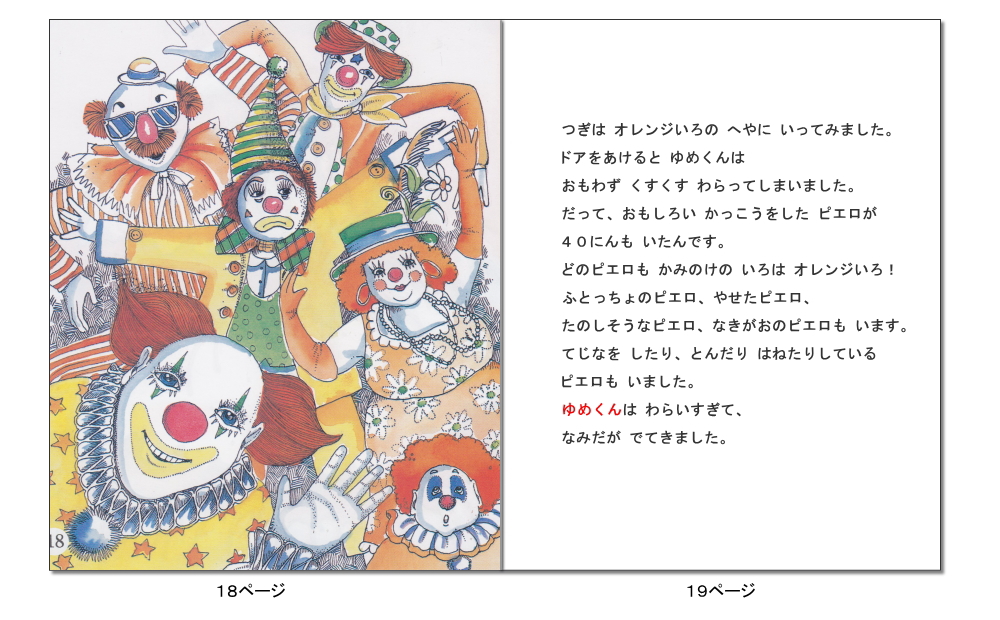 つぎは オレンジいろの へやに いってみました。
ドアをあけると ゆめくんは
おもわず くすくす わらってしまいました。
だって、おもしろい かっこうをした ピエロが
４０にんも いたんです。
どのピエロも かみのけの いろは オレンジいろ！
ふとっちょのピエロ、やせたピエロ、
たのしそうなピエロ、なきがおのピエロも います。
てじなを したり、とんだり はねたりしている
ピエロも いました。
ゆめくんは わらいすぎて、
なみだが でてきました。
18
18ページ
19ページ